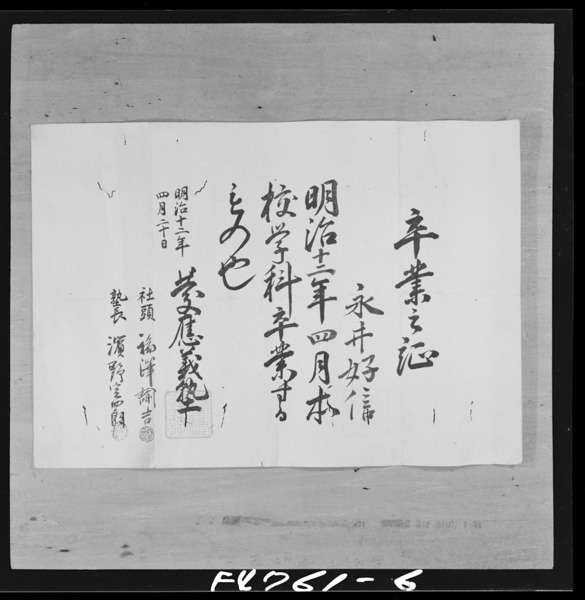 卒業之証
永井好信
明治十二年四月本
校学科卒業する
もの也
明治十二年
四月二十日
慶應義塾
社頭 福澤諭吉
塾長 濱野定四郎
FY761-6